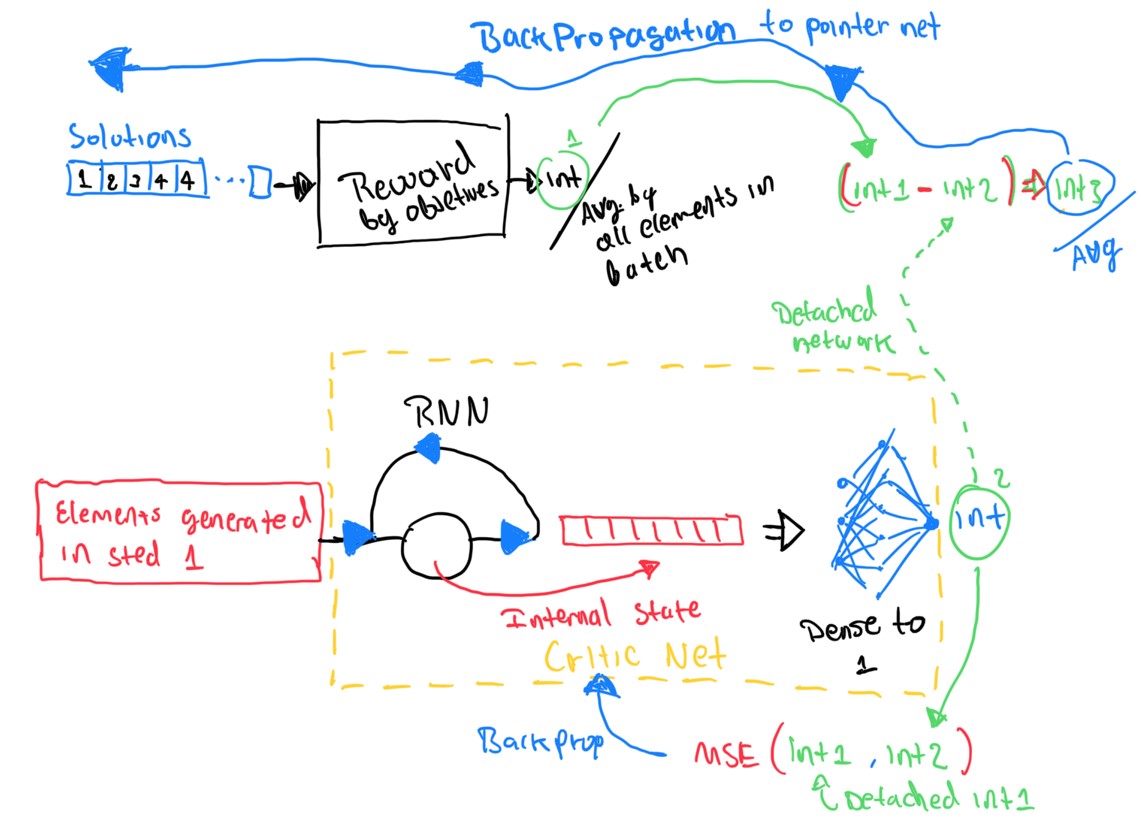 BackPropagation to pointer net
Solutions
1 2 3 4 4 ...
Reward
by objetives
1
int
Avg. by
all elements in
batch
(int1 - int2) ⇒ int3
Avg
Detached
network
RNN
Elements generated
in sted 1
2
int
Internal state
Dense to
1
Critic Net
Backprop
MSE (int1, int2)
Detached int1